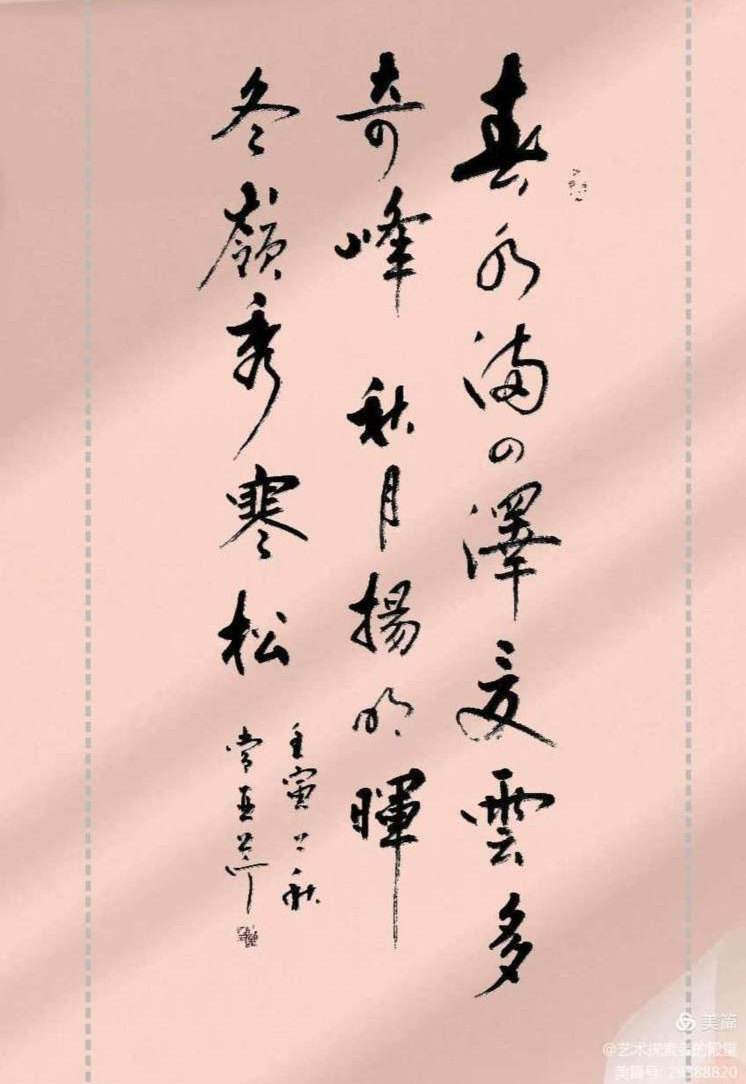 春水滿四澤夏雲多
奇峰秋月揚明暉
冬嶺秀寒松
壬寅之秋
常亚
美篇
@艺术探索者的殿堂
美篇号: 29388820